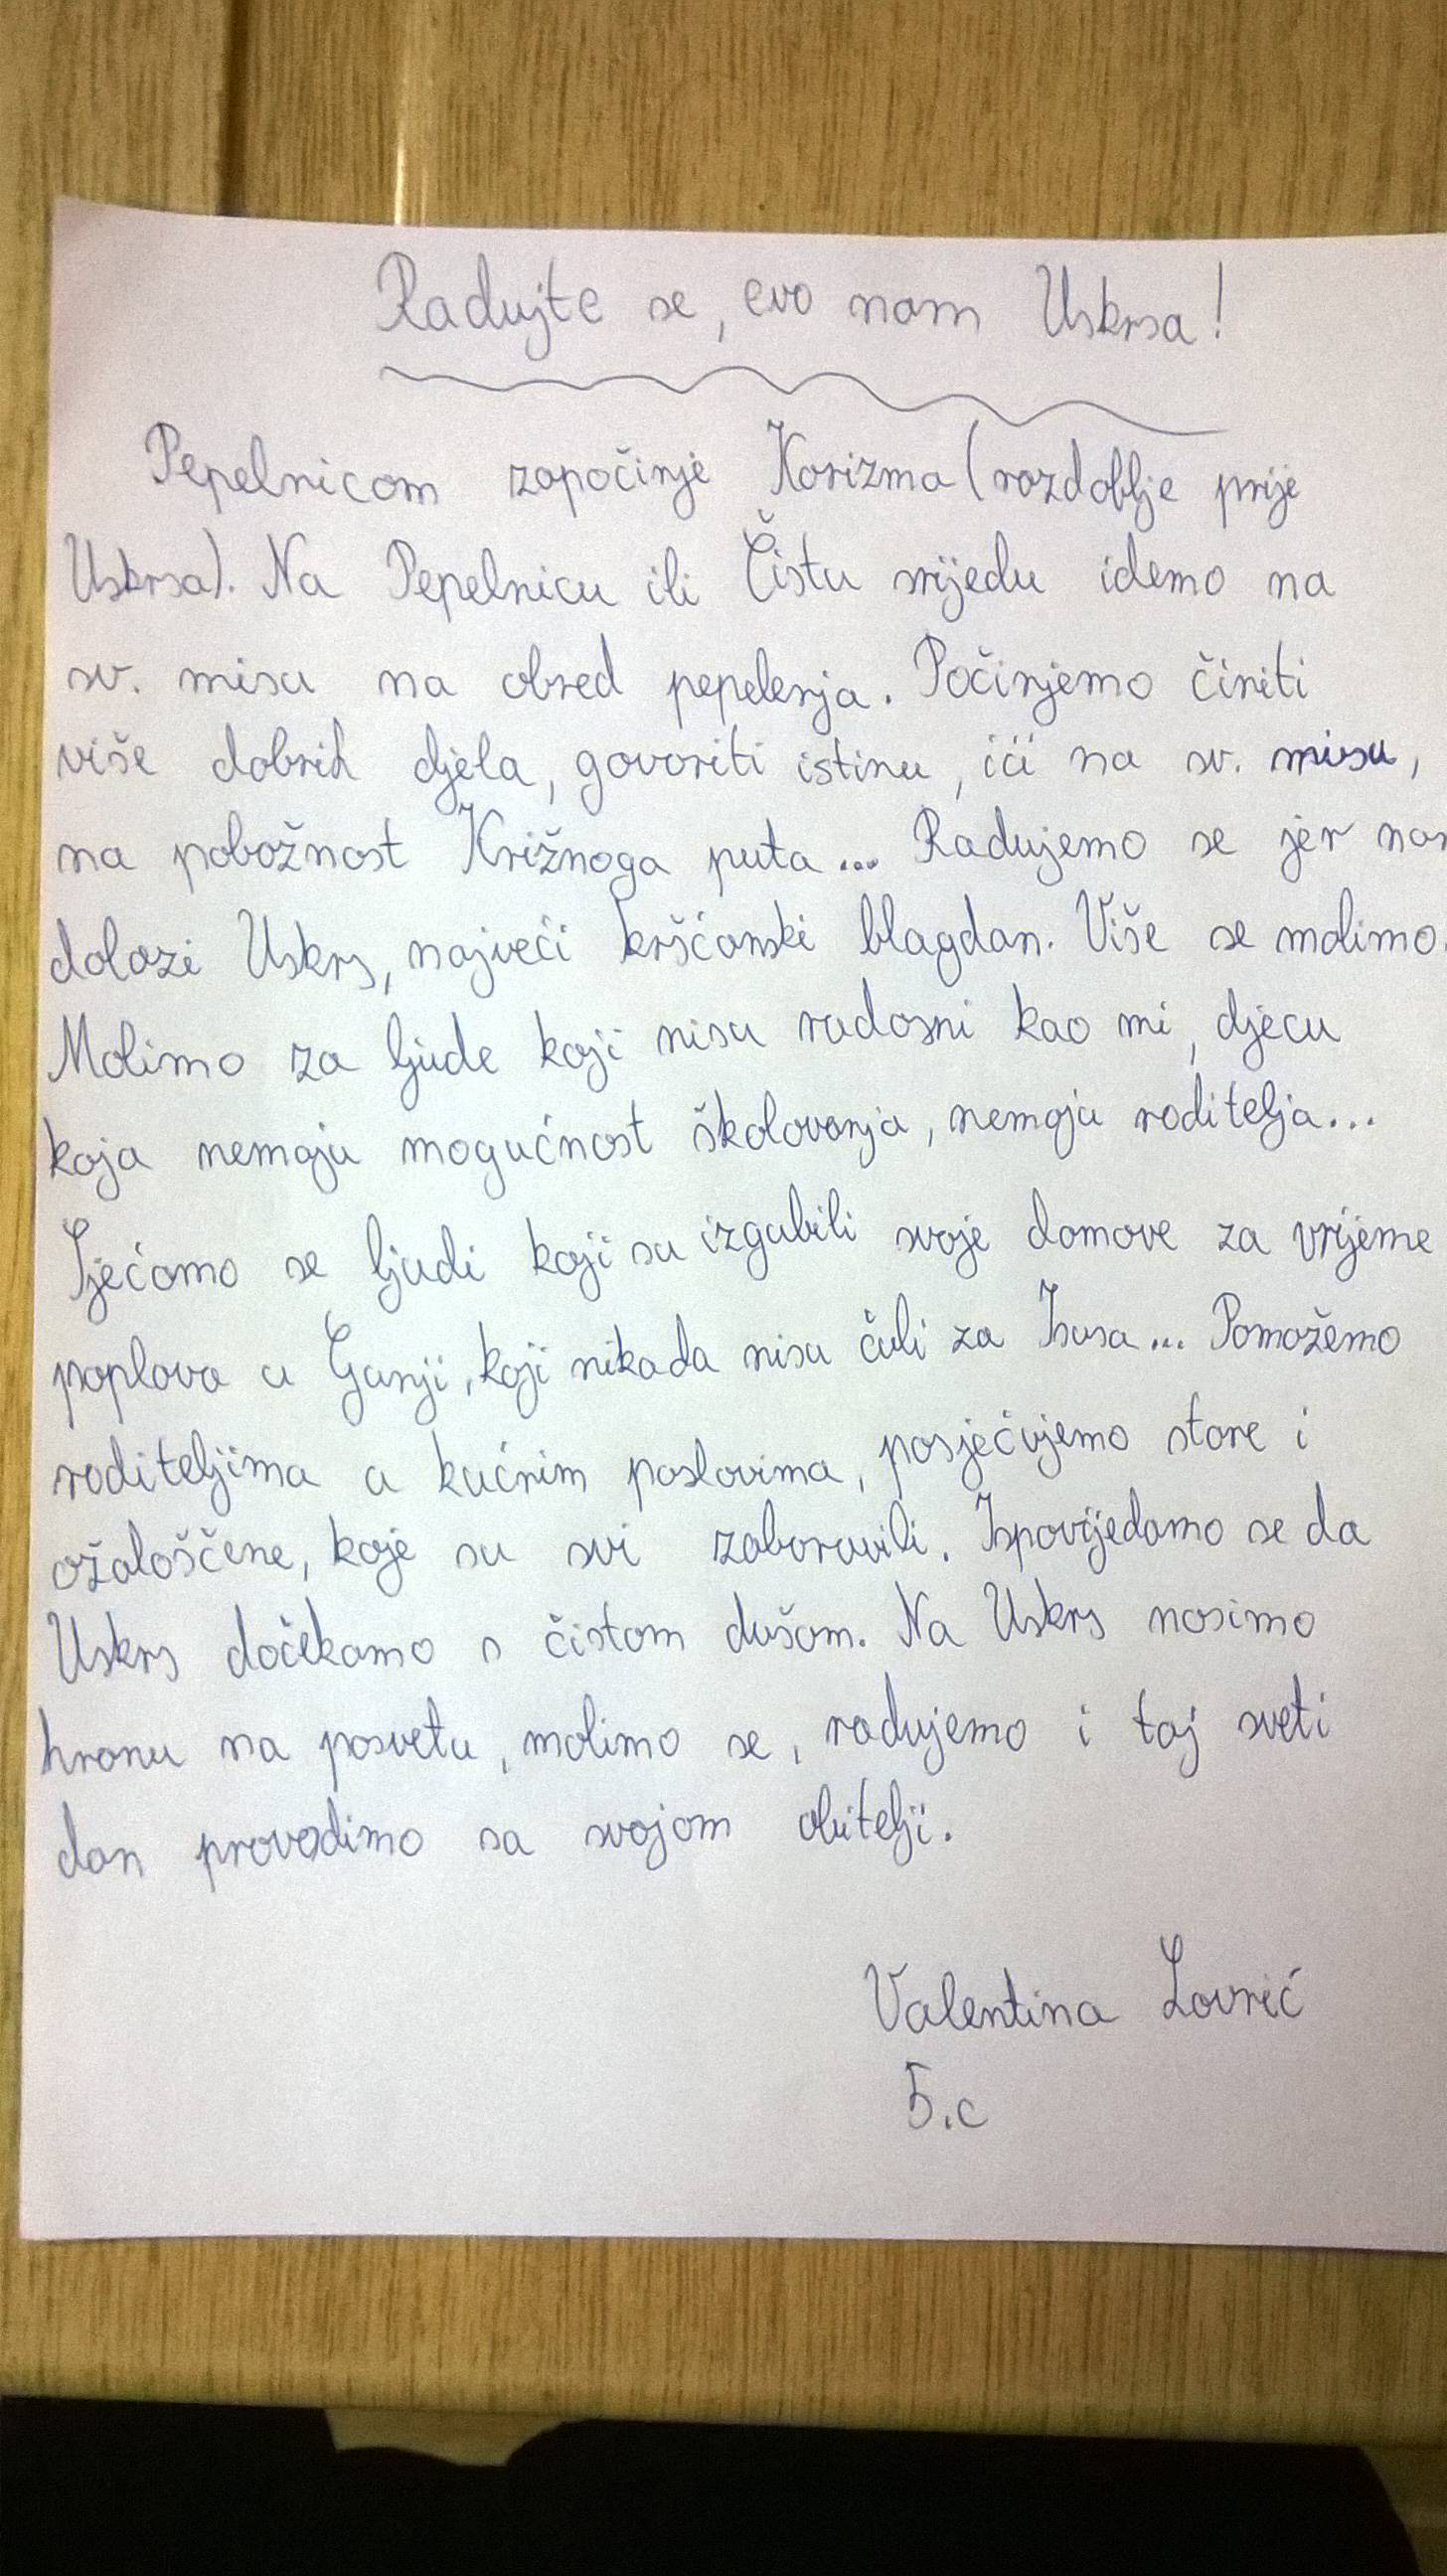 Radujte se, evo nam Uskrsa!
Pepelnicom započinje Korizma (razdoblje prije
Uskrsa). Na Pepelnicu ili Čistu srijedu idemo na
sv. misu na obred pepelenja. Počinjemo činiti
više dobrih djela, govoriti istinu, ići na sv. misu,
na pobožnost Križnoga puta... Radujemo se jer
dolazi Uskrs, najveći kršćanski blagdan. Više se molimo.
Molimo za ljude koji nisu radosni kao mi, djecu
koja nemaju mogućnost školovanja, nemaju roditelja...
Sjećamo se ljudi koji su izgubili svoje domove za vrijeme
poplava u Gunji, koji nikada nisu čuli za Isusa... Pomožemo
roditeljima u kućnim poslovima, posjećujemo stare i
ožalošćene, koje su svi zaboravili. Ispovijedamo se da
Uskrs dočekamo s čistom dušom. Na Uskrs nosimo
hranu na posvetu, molimo se, radujemo i taj sveti
dan provodimo sa svojom obitelji.
Valentina Lovrić
5.c